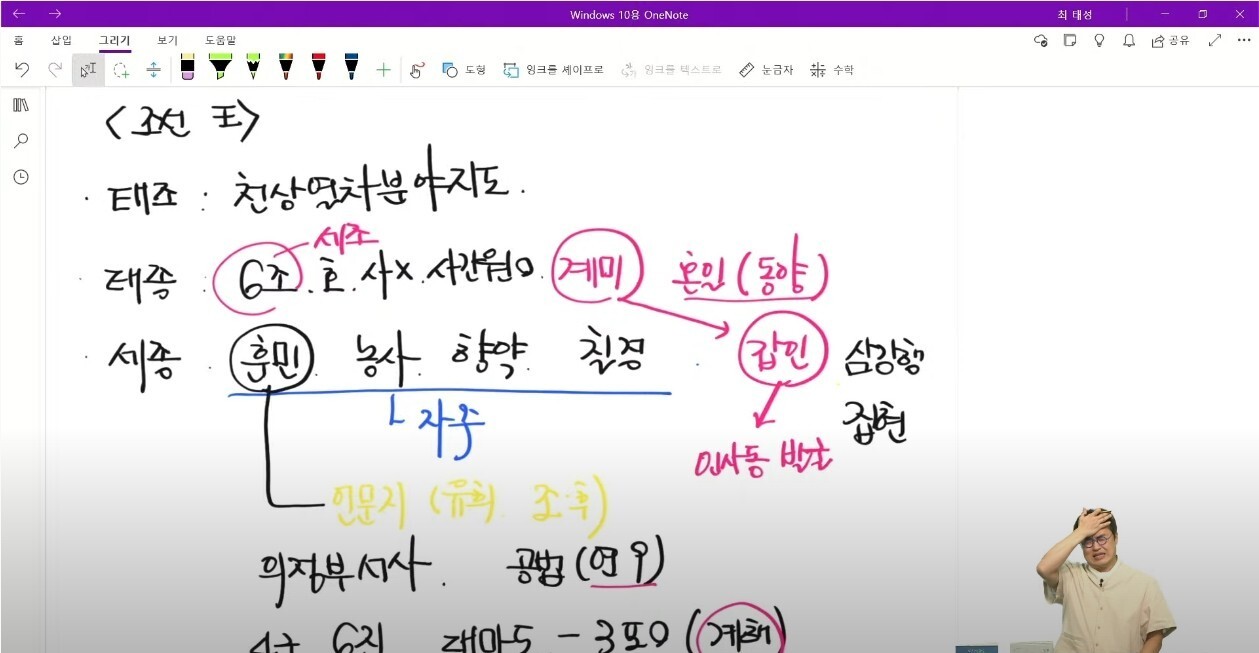 Windows 10용 OneNote 최 태성
홈 삽입 그리기 보기 도움말 공유
도형 잉크를 셰이프로 잉크를 텍스트로 눈금자 수학
<조선 王>
· 태조 : 천상열차분야지도.
세조
· 태종 : 6조. 호. 사X. 사간원O. 계미 혼일(동양)
· 세종 훈민. 농사. 향약. 칠정 · 갑인 삼강행
ㄴ자주 집현
인사동 발간
언문지 (유희. 조.후)
의정부서사. 공법(연9)
4군 6진 대마도 - 3포O (계해)